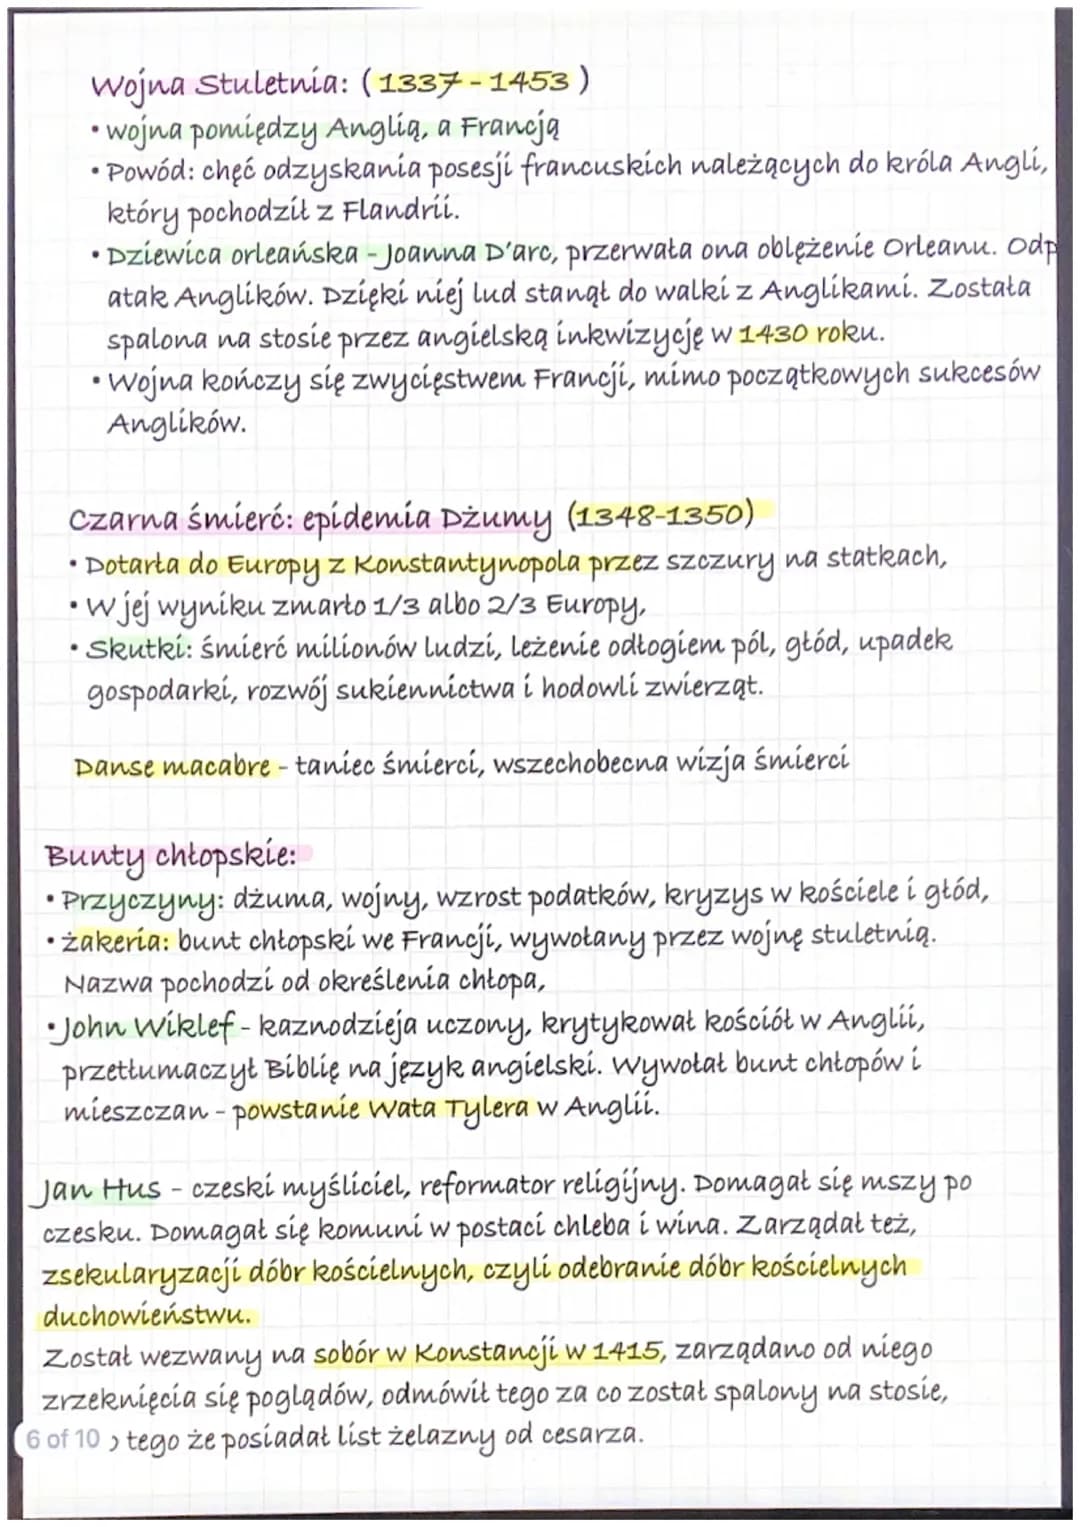 Wojna Stuletnia: (1337-1453)
• wojna pomiędzy Anglią, a Francją
• Powód: chęć odzyskania posesji francuskich należących do króla Angli,
który pochodził z Flandrii.
• Dziewica orleańska - Joanna D'arc, przerwała ona oblężenie Orleanu. Odp
atak Anglików. Dzięki niej lud stanął do walki z Anglikami. Została
spalona na stosie przez angielską inkwizycję w 1430 roku.
• Wojna kończy się zwycięstwem Francji, mimo początkowych sukcesów
Anglików.
Czarna śmierć: epidemia Dżumy (1348-1350)
• Dotarła do Europy z Konstantynopola przez szczury na statkach,
• W jej wyniku zmarło 1/3 albo 2/3 Europy,
• Skutki: śmierć milionów ludzi, leżenie odłogiem pól, głód, upadek
gospodarki, rozwój sukiennictwa i hodowli zwierząt.
Danse macabre - taniec śmierci, wszechobecna wizja śmierci
Bunty chłopskie:
• Przyczyny: dżuma, wojny, wzrost podatków, kryzys w kościele i głód,
• żakeria: bunt chłopski we Francji, wywołany przez wojnę stuletnią.
Nazwa pochodzi od określenia chłopa,
• John Wiklef - kaznodzieja uczony, krytykował kościół w Anglii,
przetłumaczył Biblię na język angielski. Wywołał bunt chłopów i
mieszczan - powstanie Wata Tylera w Anglii.
Jan Hus - czeski myśliciel, reformator religijny. Domagał się mszy po
czesku. Domagał się komuni w postaci chleba i wina. Zarządał też,
zsekularyzacji dóbr kościelnych, czyli odebranie dóbr kościelnych
duchowieństwu.
Został wezwany na sobór w Konstancji w 1415, zarządano od niego
zrzeknięcia się poglądów, odmówił tego za co został spalony na stosie,
6 of 10 tego że posiadał list żelazny od cesarza.